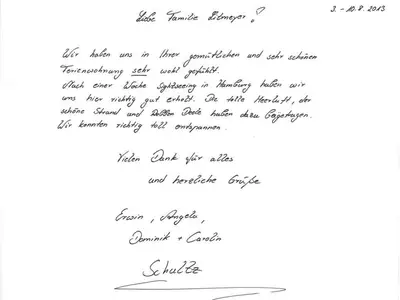 3. - 10.8.2013
Liebe Familie !
Wir haben uns in Ihrer gemütlichen und sehr schönen
Ferienwohnung sehr wohl gefühlt.
Nach einer Woche Sightseeing in Hamburg haben wir
uns hier richtig gut erholt. Die tolle Meerluft, der
schöne Strand und haben dazu beigetragen.
Wir konnten richtig toll entspannen.
Vielen Dank für alles
und herzliche Grüße
Erwin, Angela,
Dominik + Carolin
Schultz